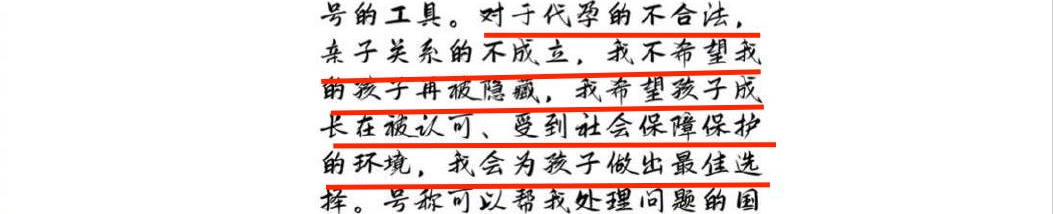 号的工具。对于代孕的不合法，
亲子关系的不成立，我不希望我
的孩子再被隐藏，我希望孩子成
长在被认可、受到社会保障保护
的环境，我会为孩子做出最佳选
择。号称可以帮我处理问题的国